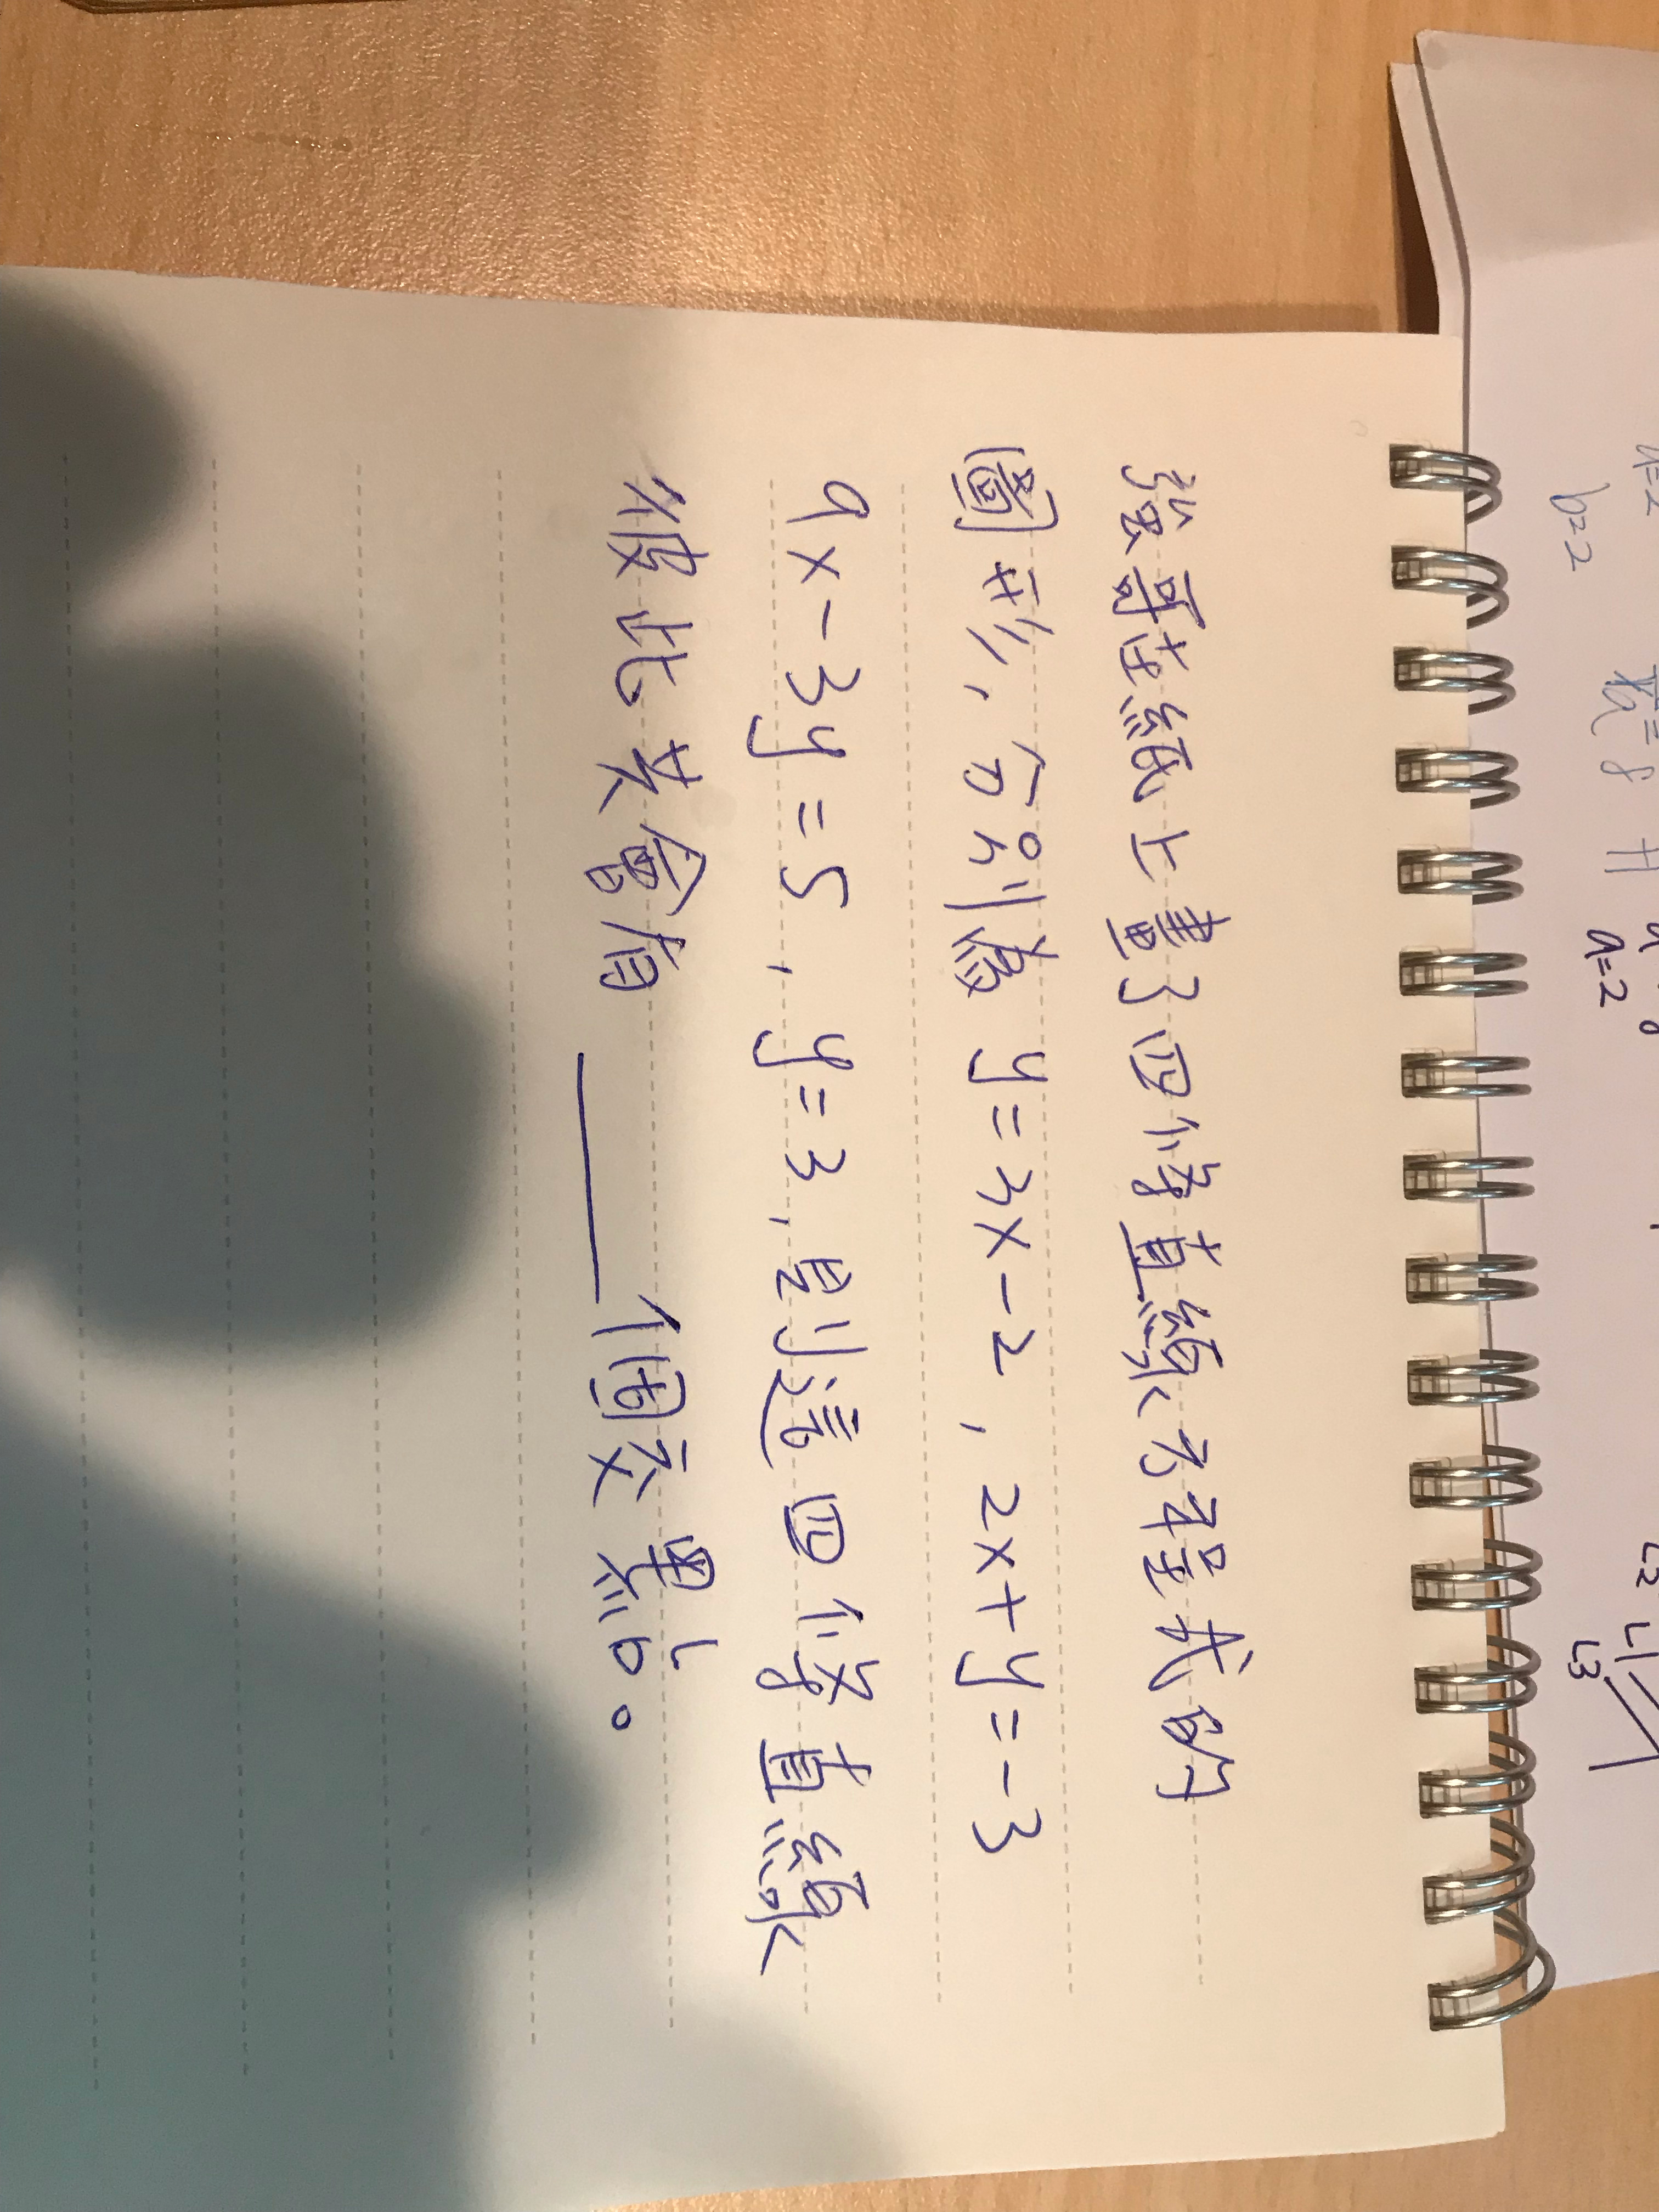 張哥在紙上畫了四條直線方程式的
圖形,分別為 y=3x-2,2x+y=-3
9x-3y=5,y=3,則這四條直線
彼此共會有____個交點。
b=2
a=2
L2 L1
L3